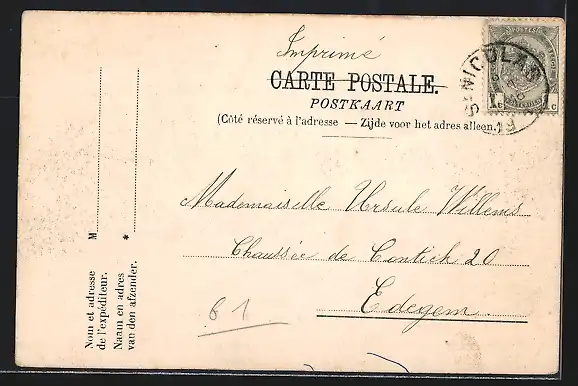 Imprimé
CARTE POSTALE.
POSTKAART
(Côté réservé à l'adresse — Zijde voor het adres alleen.)
Mademoiselle Ursule Willems
Chaussée de Contich 20
Edegem
61
Nom et adresse
de l'expéditeur.
M
Naam en adres
van den afzender.
*
POSTES
1 c 1 c
ST NICOLAS
19